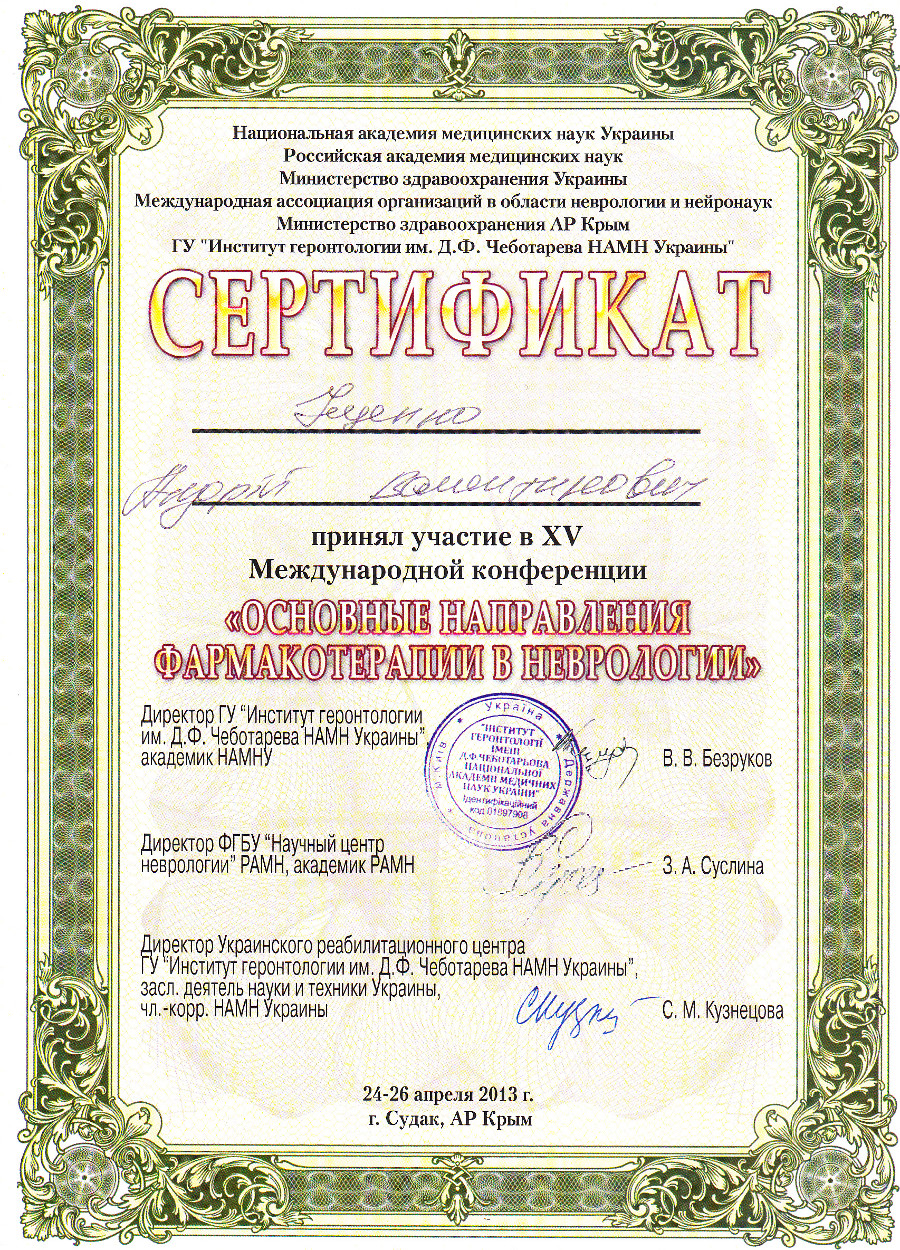 Национальная академия медицинских наук Украины
Российская академия медицинских наук
Министерство здравоохранения Украины
Международная ассоциация организаций в области неврологии и нейронаук
Министерство здравоохранения АР Крым
ГУ "Институт геронтологии им. Д.Ф. Чеботарева НАМН Украины"
СЕРТИФИКАТ
Андрей Валентинович
принял участие в XV
Международной конференции
«ОСНОВНЫЕ НАПРАВЛЕНИЯ
ФАРМАКОТЕРАПИИ В НЕВРОЛОГИИ»
Директор ГУ “Институт геронтологии
им. Д.Ф. Чеботарева НАМН Украины”,
академик НАМНУ
В. В. Безруков
Україна
Державна установа
м. Київ
"ІНСТИТУТ
ГЕРОНТОЛОГІЇ
ІМЕНІ
Д.Ф.ЧЕБОТАРЬОВА
НАЦІОНАЛЬНОЇ
АКАДЕМІЇ МЕДИЧНИХ
НАУК УКРАЇНИ"
Ідентифікаційний
код 01897908
Директор ФГБУ “Научный центр
неврологии” РАМН, академик РАМН
З. А. Суслина
Директор Украинского реабилитационного центра
ГУ “Институт геронтологии им. Д.Ф. Чеботарева НАМН Украины”,
засл. деятель науки и техники Украины,
чл.-корр. НАМН Украины
С. М. Кузнецова
24-26 апреля 2013 г.
г. Судак, АР Крым